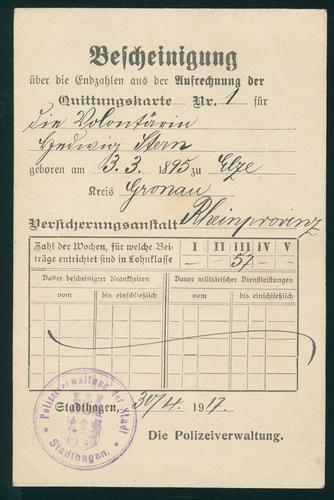 Bescheinigung
über die Endzahlen aus der Aufrechnung der
Quittungskarte Nr. 1 für
die Volontärin
Hedwig Stern
geboren am 3.3. 1895 zu Elze
Kreis Gronau
Versicherungsanstalt Rheinprovinz
Zahl der Wochen, für welche Beiträge entrichtet sind in Lohnklasse
I II III IV V
— — 57 — —
Dauer bescheinigter Krankheiten
Dauer militärischer Dienstleistungen
vom bis einschließlich vom bis einschließlich
Stadthagen, 30/4. 1917.
Die Polizeiverwaltung.
Polizeiverwaltung der Stadt
Stadthagen.